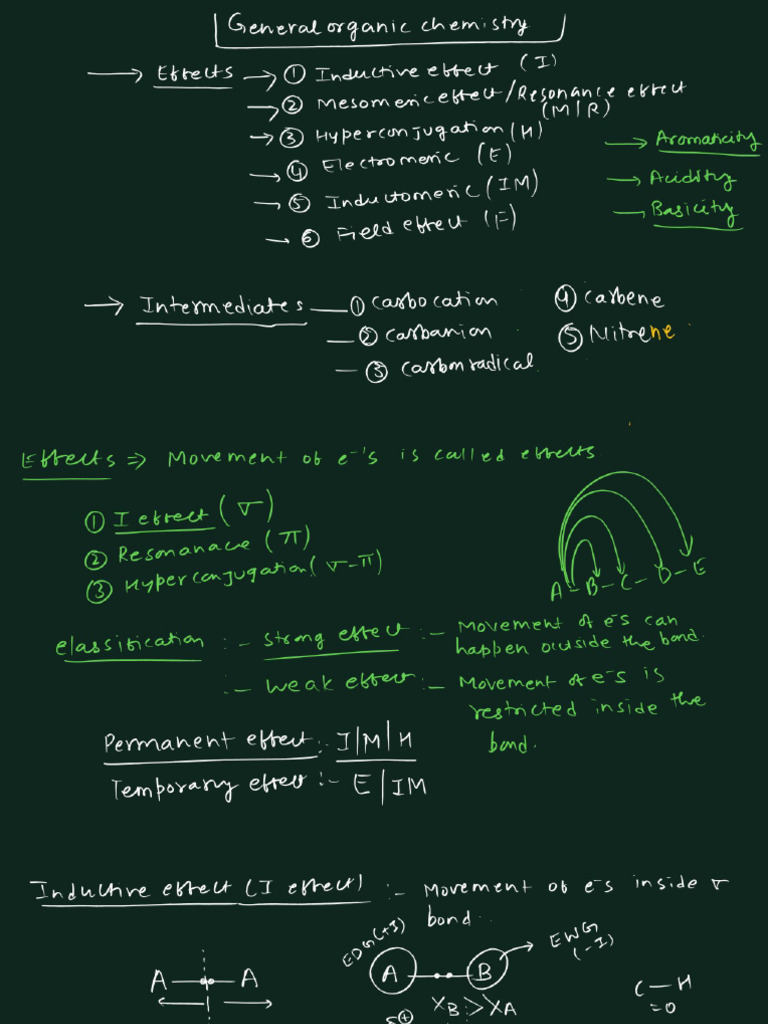 General organic chemistry
→ Effects → ① Inductive effect (I)
→ ② Mesomeric effect/Resonance effect (M/R)
→ ③ Hyperconjugation (H)
→ ④ Electromeric (E)
→ ⑤ Inductomeric (IM)
→ ⑥ Field effect (F)
→ Aromaticity
→ Acidity
→ Basicity
→ Intermediates — ① Carbocation
— ② Carbanion
— ③ Carbon radical
④ Carbene
⑤ Nitrene
Effects ⇒ Movement of e⁻'s is called effects
① I effect (σ)
② Resonanace (π)
③ Hyperconjugation (σ-π)
A-B-C-D-E
Classification :- Strong effect :- Movement of e⁻s can
happen outside the bond.
:- Weak effect :- Movement of e⁻s is
restricted inside the
bond.
Permanent effect :- I/M/H
Temporary effect :- E/IM
Inductive effect (I effect) :- Movement of e⁻s inside σ
bond.
A — A
EDG(+I)
A — B
EWG
(-I)
XB > XA
δ⊕
C — H
=0